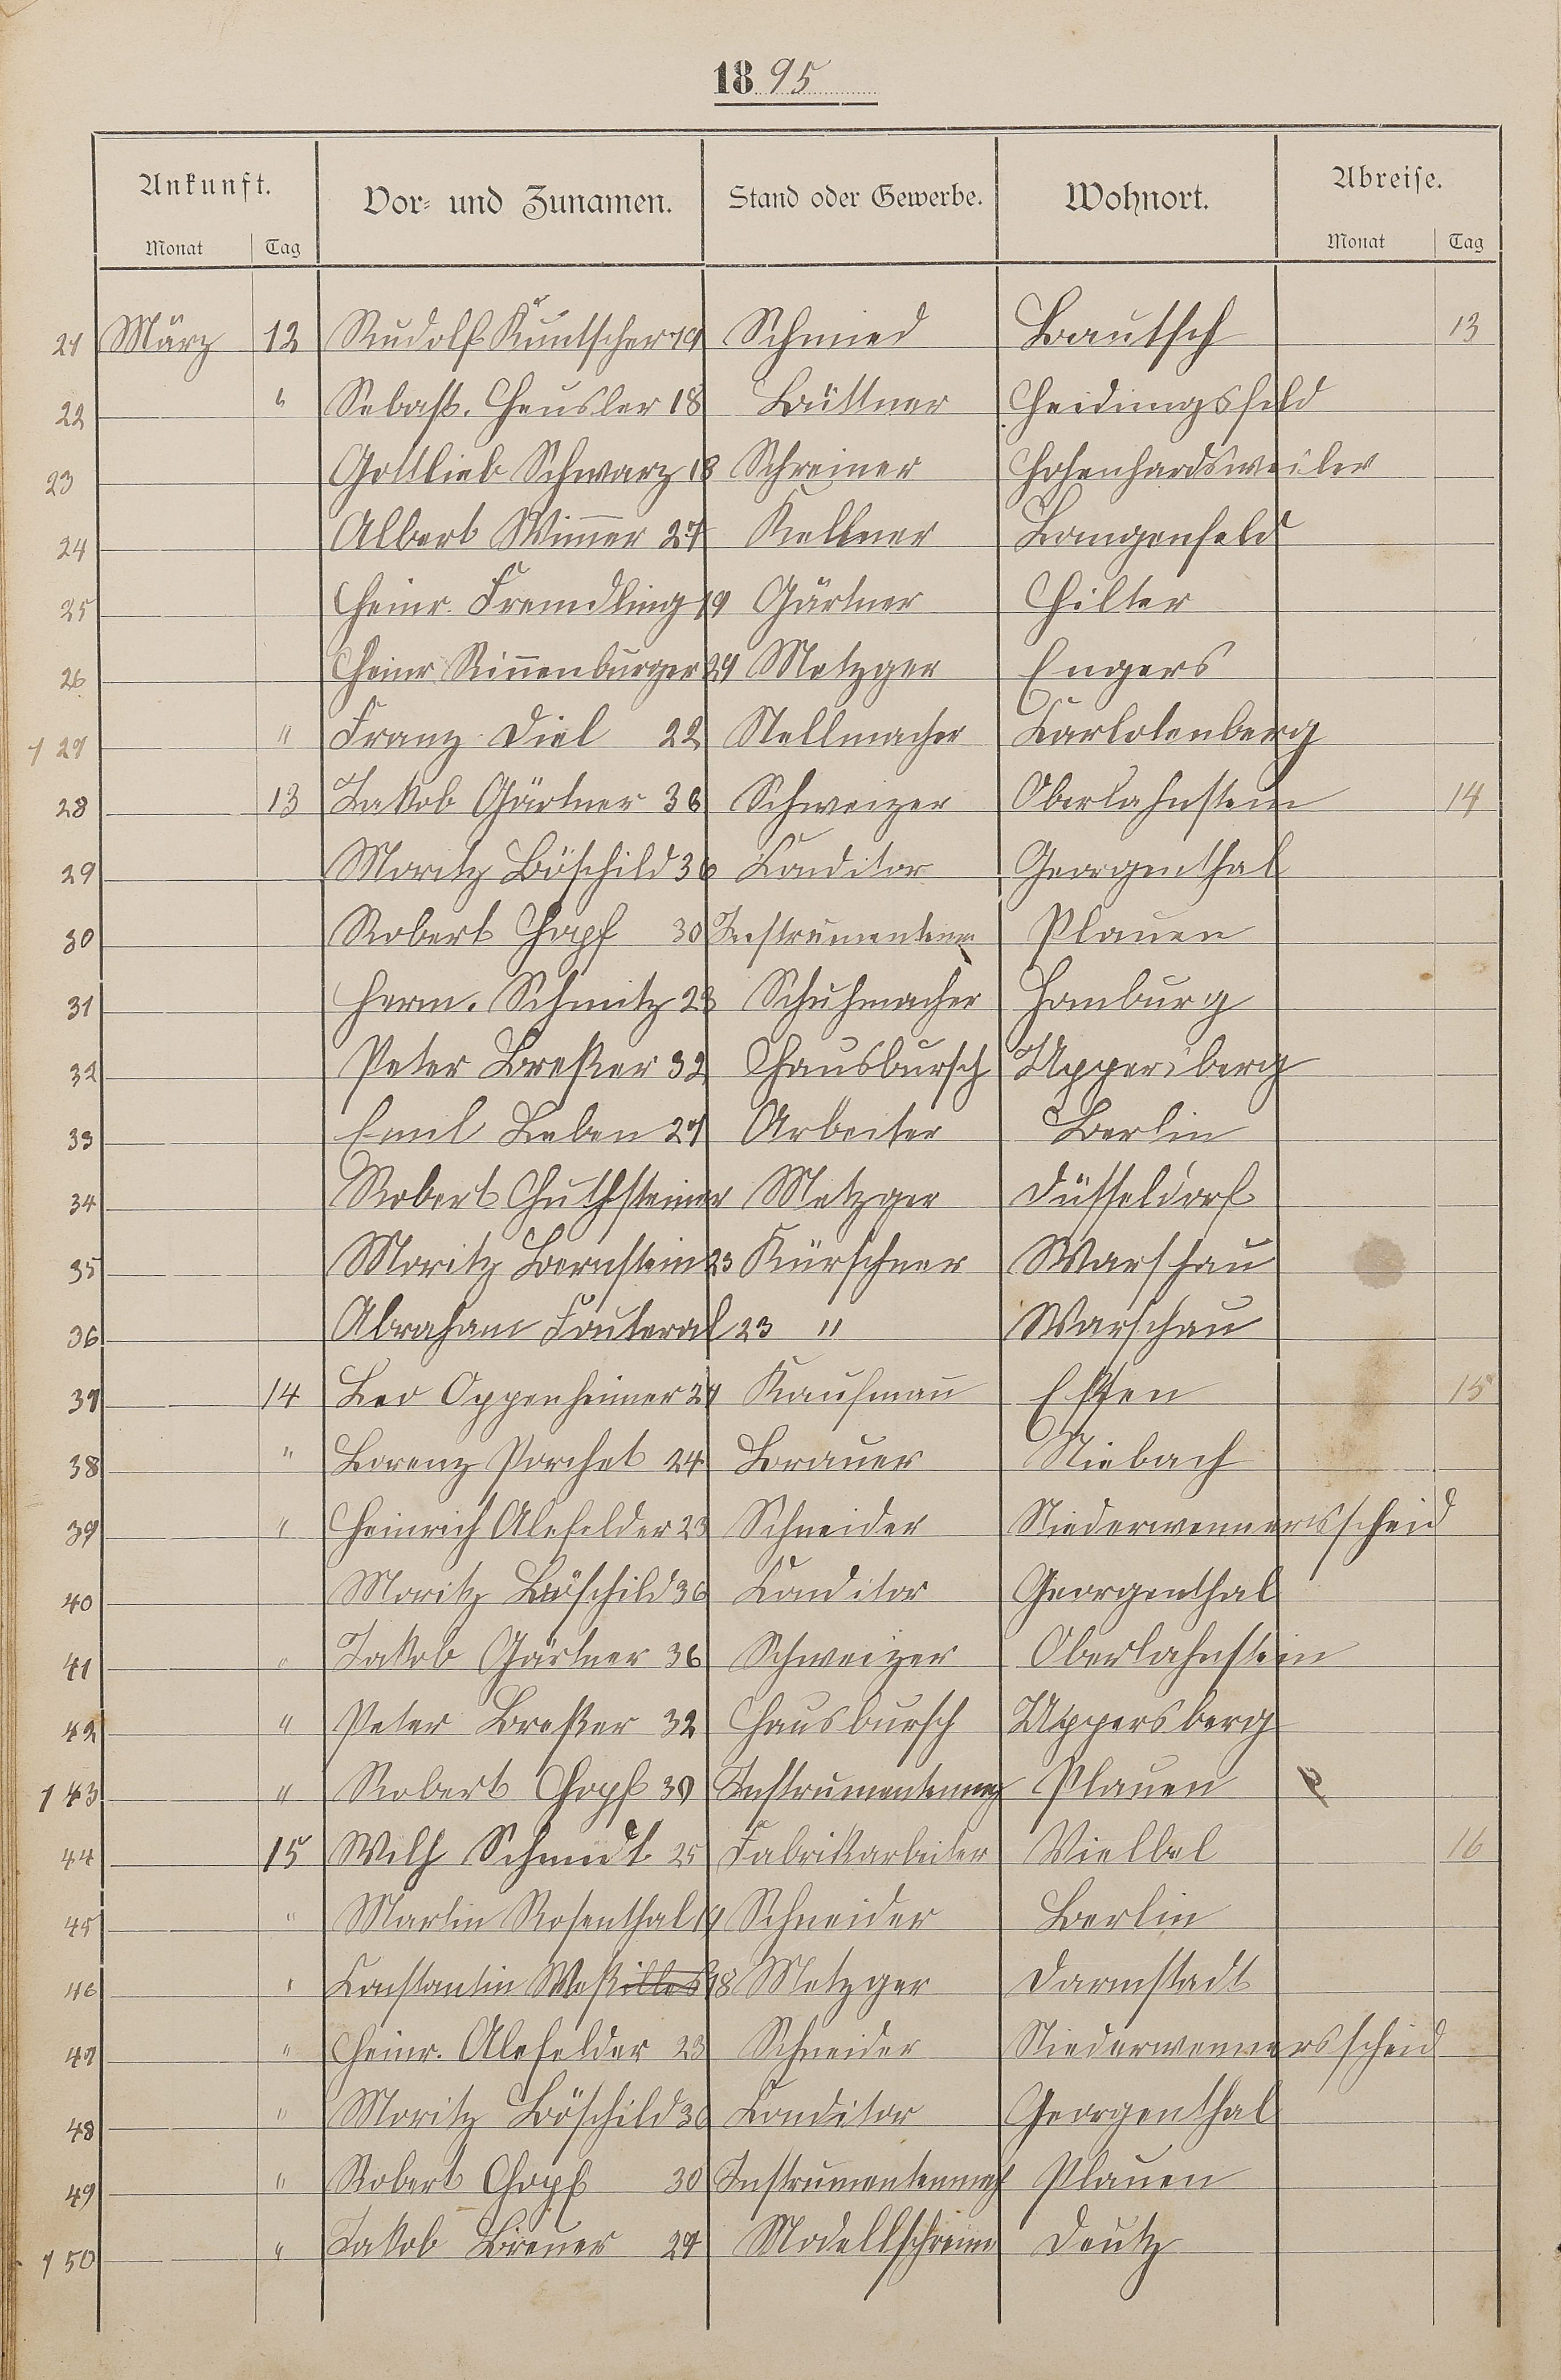 1895
Ankunft. Vor- und Zunamen. Stand oder Gewerbe. Wohnort. Abreise.
Monat Tag Monat Tag
21 März 12 Rudolf Kuntscher 19 Schmied Bautsch 13
22 " Sebast. Heusler 18 Büttner Heidingsfeld
23 Gottlieb Schwarz 18 Schreiner Hohenhardsweiler
24 Albert Wim̅er 27 Kellner Langenfeld
25 Heinr. Fremdling 19 Gärtner Hilter
26 Heinr Rin̅enburger 24 Metzger Engers
127 " Franz Diel 22 Stellmacher
28 13 Jakob Gärtner 36 Schweizer Oberlahnstein 14
29 Moritz Böschild 36 Conditor Georgenthal
30 Robert Hopf 30 Instrumentenm Plauen
31 Herm. Schmitz 28 Schuhmacher Homburg
32 Peter Breßer 32 Hausbursch Uppersberg
33 Emil Leben 27 Arbeiter Berlin
34 Robert Huthsteiner Metzger Düsseldorf
35 Moritz Bernstein 23 Kürschner Warschau
36 Abraham Fouteral 23 " Warschau
37 14 Leo Oppenheimer 27 Kaufman̅ Essen 15
38 " Lorenz Porchet 24 Brauer Niebach
39 " Heinrich Alefelder 23 Schneider Niederwennerscheid
40 Moritz Böschild 36 Conditor Georgenthal
41 " Jakob Gärtner 36 Schweizer Oberlahnstein
42 " Peter Breßer 32 Hausbursch Uppersberg
143 " Robert Hopf 30 Instrumentenmch Plauen
44 15 Wilh Schmidt 25 Fabrikarbeiter Vielbel 16
45 " Martin Rosenthal 19 Schneider Berlin
46 " Constantin 18 Metzger Darmstadt
47 " Heinr. Alefelder 23 Schneider Niederwennersscheid
48 " Moritz Böschild 36 Conditor Georgenthal
49 " Robert Hopf 30 Instrumentenmch Plauen
150 " Jakob Breuer 27 Modellschrein Deutz